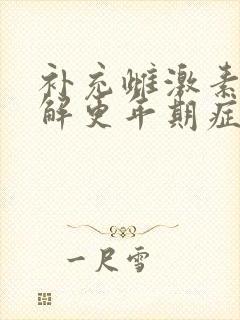 补充雌激素
解更年期症
一尺雪